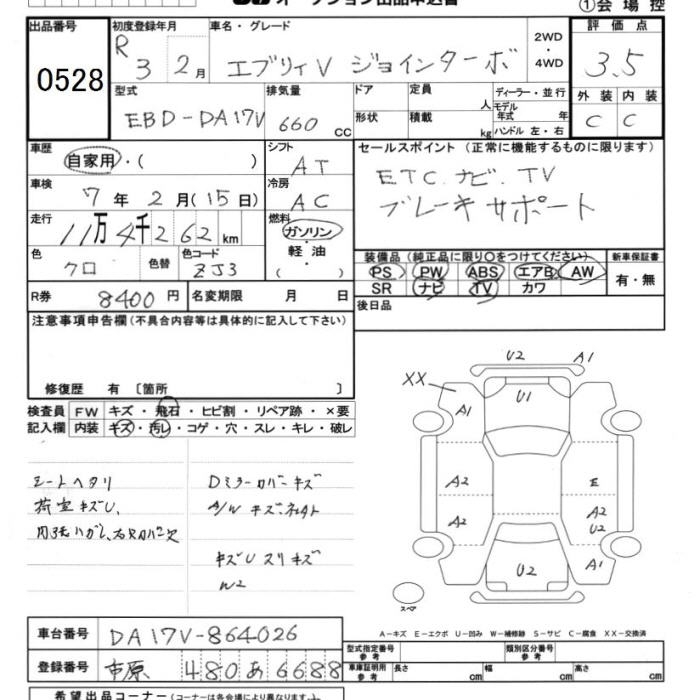 オークション出品申込書
①会場控
出品番号
0528
初度登録年月
R3 2月
車名・グレード
エブリィV ジョインターボ
2WD・4WD
評価点
3.5
型式
EBD-DA17V
排気量
660 cc
ドア
形状
定員 人
積載 kg
ディーラー・並行
モデル年式 年
ハンドル 左・右
外装 内装
C C
車歴
自家用・( )
シフト
AT
セールスポイント (正常に機能するものに限ります)
ETC.ナビ.TV
ブレーキサポート
車検
7年2月(15日)
冷房
AC
走行
11万4千262km
燃料
ガソリン・軽油・( )
色
クロ
色替
色コード
ZJ3
装備品 (純正品に限り○をつけてください)
PS PW ABS エアB AW
SR ナビ TV カワ
新車保証書
有・無
R券 8400円
名変期限 月 日
後日品
注意事項申告欄 (不具合内容等は具体的に記入して下さい)
修復歴 有 〔箇所 〕
検査員記入欄
FW キズ・飛石・ヒビ割・リペア跡・×要
内装 キズ・汚レ・コゲ・穴・スレ・キレ・破レ
シートヘタリ
荷室キズU、
Dミラーカバーキズ
A/W キズ・
キズUスリキズ
W2
U2 A1
XX
A1
U1
A2
E
A2
A2
U2
A1
U2
スペア
A-キズ E-エクボ U-凹み W-補修跡 S-サビ C-腐食 XX-交換済
車台番号 DA17V-864026
型式指定番号 参考
類別区分番号 参考
登録番号 市原 480 あ 6688
車庫証明用 参考 長さ cm 幅 cm 高さ cm
希望出品コーナー(コーナーは各会場により異なります。)